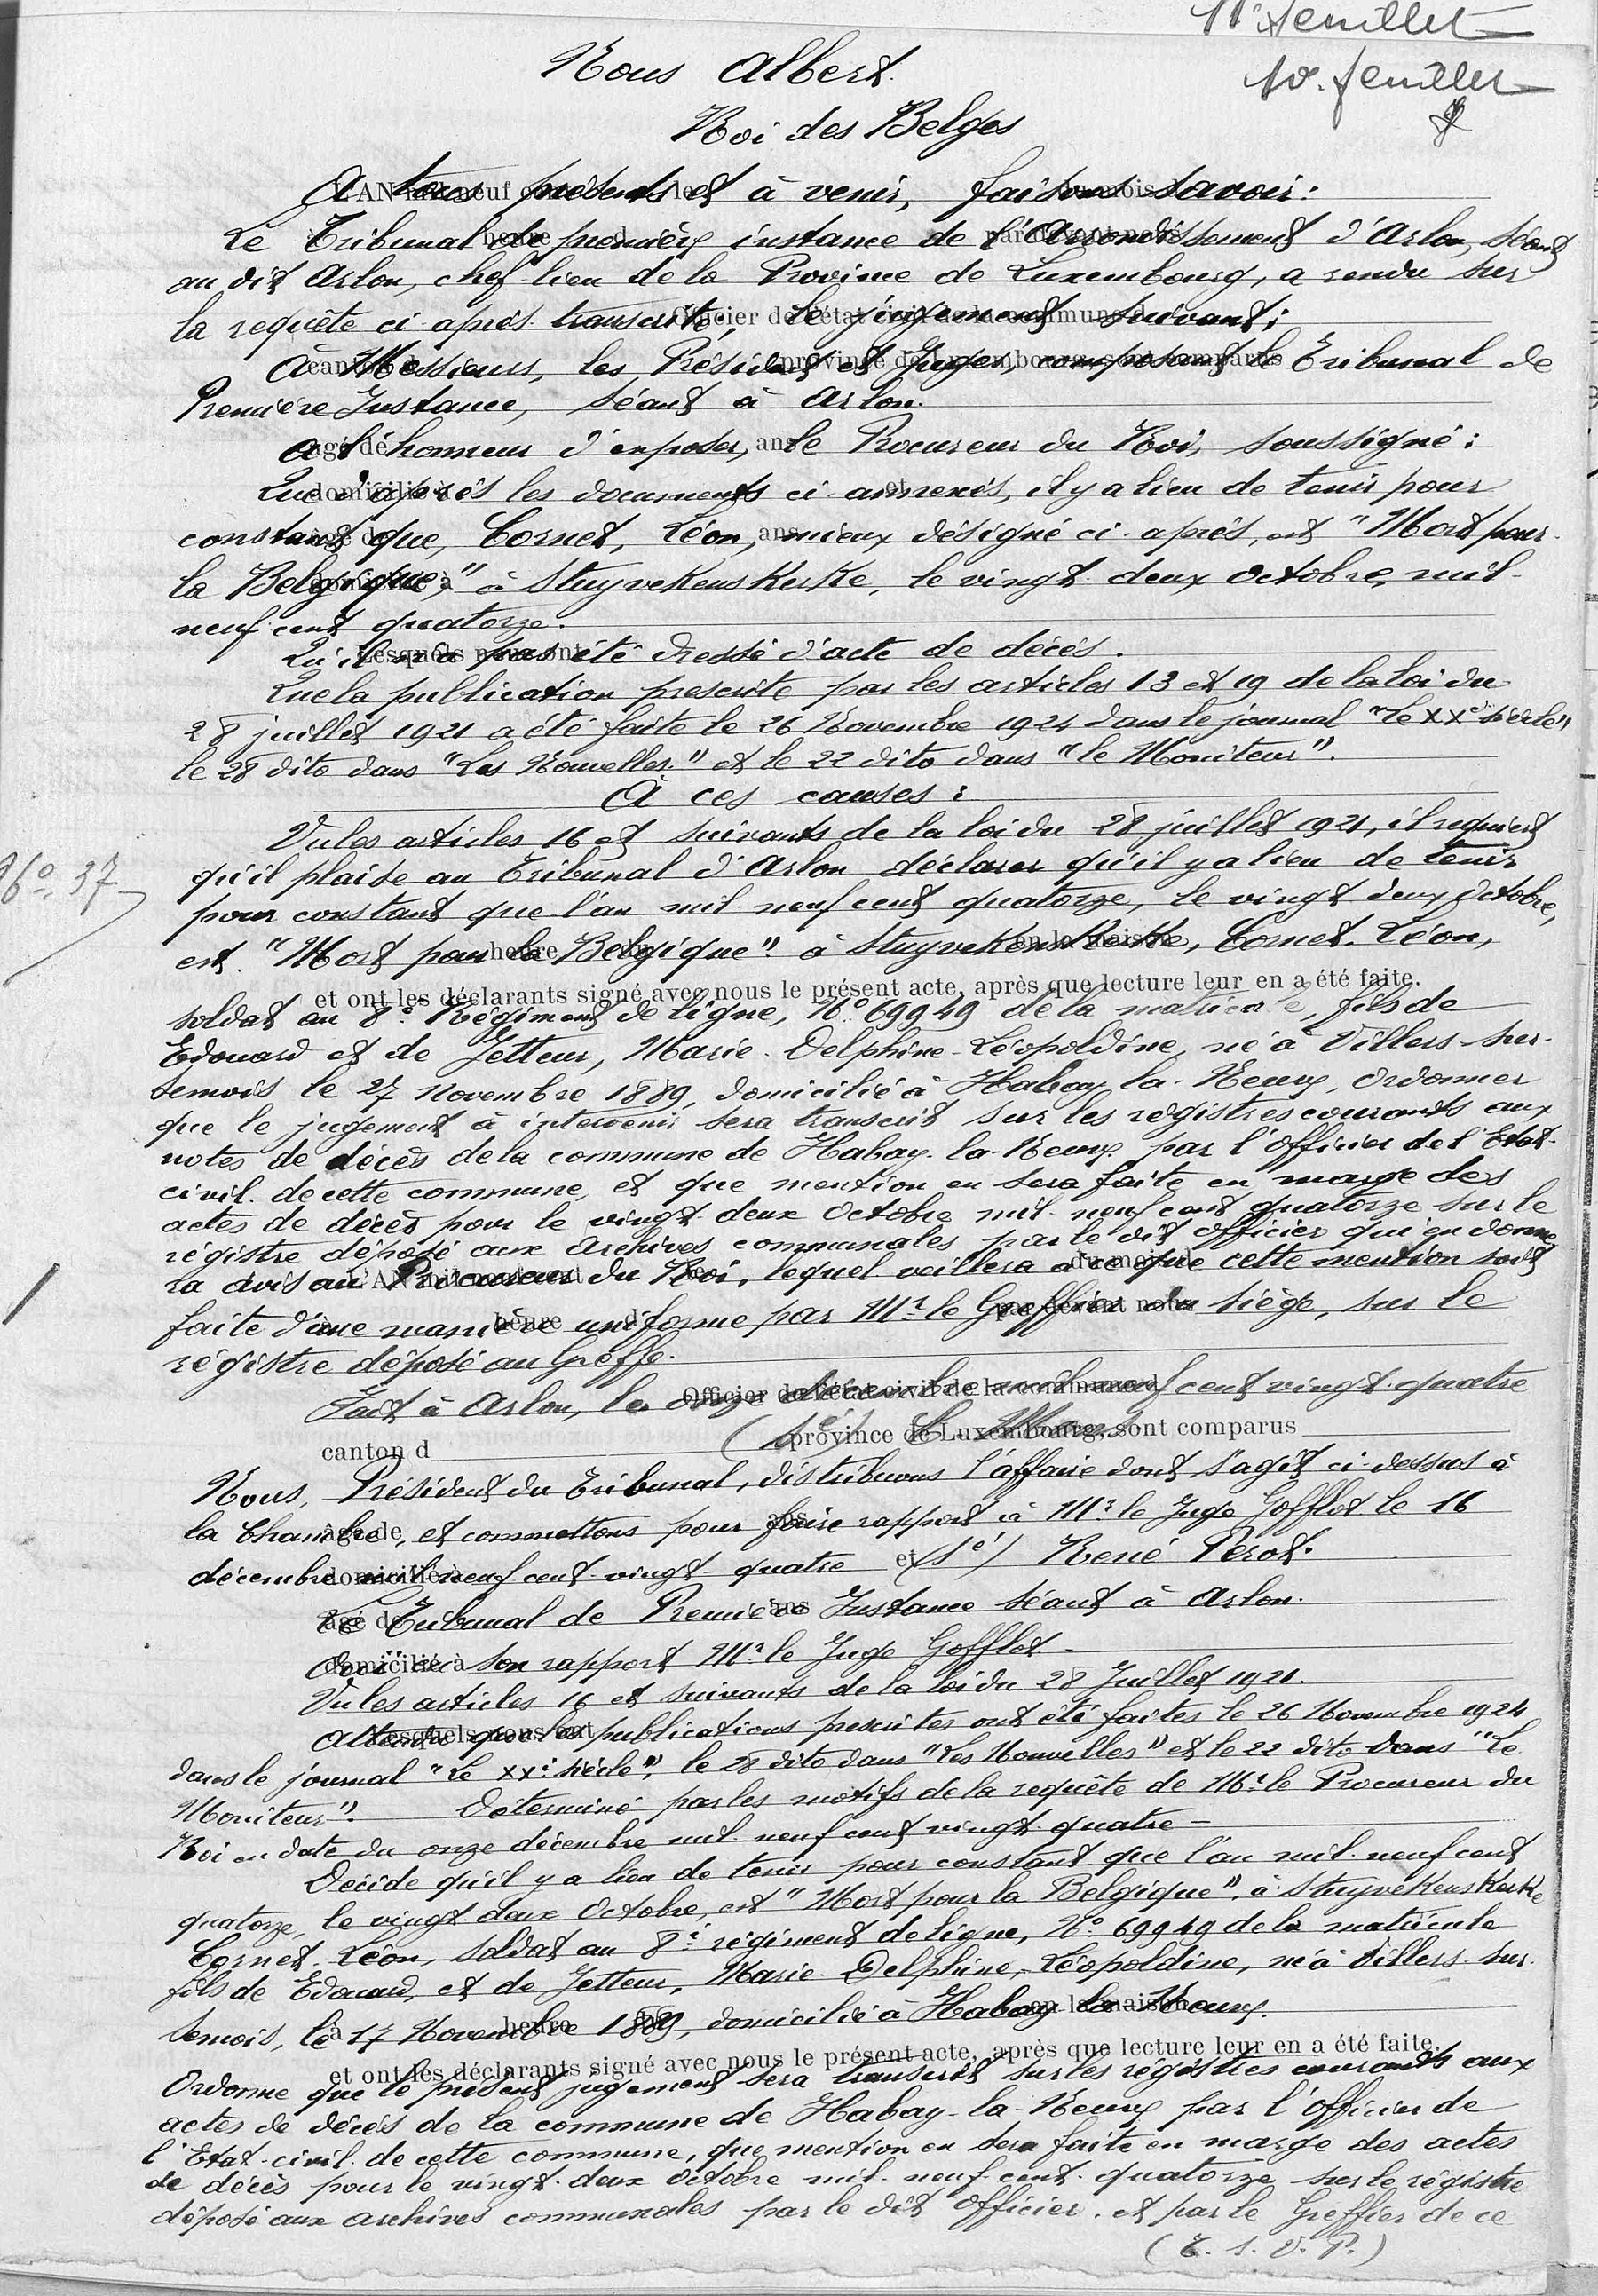 11e feuillet
10e feuillet
Nous Albert
Roi des Belges
A tous présents et à venir, faisons savoir:
Le Tribunal de première instance de l'Arrondissement d'Arlon, séant
au dit Arlon, chef-lieu de la Province de Luxembourg, a rendu sur
la requête ci après transcrite, le jugement suivant:
A Messieurs, les Président et Juges, composant le Tribunal de
Première Instance, séant à Arlon.
a l'honneur d'exposer, le Procureur du Roi, soussigné:
Que d'après les documents ci-annexés, il y a lieu de tenir pour
constant que, Cornet, Léon, mieux désigné ci-après, est "Mort pour
la Belgique," à Stuyvekenskerke, le vingt-deux octobre, mil-
neuf cent quatorze.
Qu'il n'a pas été dressé d'acte de décès.
Que la publication prescrite par les articles 13 et 19 de la loi du
28 juillet 1921 a été faite le 26 Novembre 1924 dans le journal "Le XXe siècle"
le 28 dito dans "Les Nouvelles" et le 22 dito dans "le Moniteur".
A ces causes:
Vu les articles 16 et suivants de la loi du 28 juillet 1921, il requiert
qu'il plaise au Tribunal d'Arlon déclarer qu'il y a lieu de tenir
No. 37
pour constant que l'an mil-neuf cent quatorze, le vingt deux octobre,
est "Mort pour la Belgique" à Stuyvekenskerke, Cornet. Léon,
et ont les déclarants signé avec nous le présent acte, après que lecture leur en a été faite.
soldat au 8e Régiment de ligne, No 69949 de la matricule, fils de
Edouard et de Jetteur, Marie-Delphine-Léopoldine, né à Villers-sur-
Semois le 27 novembre 1889, domicilié à Habay-la-Neuve, ordonner
que le jugement à intervenir sera transcrit sur les régistres courants aux
notes de décès de la commune de Habay-la-Neuve par l'officier de l'Etat-
civil de cette commune, et que mention en sera faite en marge des
actes de décès pour le vingt-deux octobre mil-neuf cent quatorze sur le
régistre déposé aux archives communales par le dit officier qui en donne
ra avis au Procureur du Roi, lequel veillera à ce que cette mention soit
faite d'une manière uniforme par Mr le Greffier du siège, sur le
régistre déposé au Greffe.
Fait à Arlon, le onze décembre mil neuf cent vingt-quatre
canton d province de Luxembourg, sont comparus
Nous, Président du Tribunal, distribuons l'affaire dont s'agit ci-dessus à
la Chambre, et commettons pour faire rapport à Mr le Juge Gofflot le 16
décembre mil neuf cent-vingt-quatre (sé) René Pérot.
Le Tribunal de Première Instance séant à Arlon.
Ouï en son rapport Mr le Juge Gofflot.
Vu les articles 16 et suivants de la loi du 28 Juillet 1921.
Attendu que les publications prescrites ont été faites le 26 Novembre 1924
dans le journal "Le XXe siècle", le 28 dito dans "Les Nouvelles" et le 22 dito dans "Le
Moniteur". Déterminé par les motifs de la requête de Mr le Procureur du
Roi en date du onze décembre mil-neuf cent vingt-quatre-
Décide qu'il y a lieu de tenir pour constant que l'an mil-neuf cent
quatorze, le vingt-deux octobre, est "Mort pour la Belgique", à Stuyvekenskerke
Cornet-Léon, soldat au 8e régiment de ligne, No 69949 de la matricule
fils de Edouard, et de Jetteur, Marie-Delphine-Léopoldine, né à Villers-sur-
Semois, le 17 Novembre 1889, domicilié à Habay-la-Neuve.
et ont les déclarants signé avec nous le présent acte, après que lecture leur en a été faite.
Ordonne que le présent jugement sera transcrit sur les régistres courants aux
actes de décès de la commune de Habay-la-Neuve par l'officier de
l'Etat-civil de cette commune, que mention en sera faite en marge des actes
de décès pour le vingt-deux octobre mil-neuf-cent-quatorze sur le régistre
déposé aux archives communales par le dit officier. et par le Greffier de ce
(T. S. V. P.)